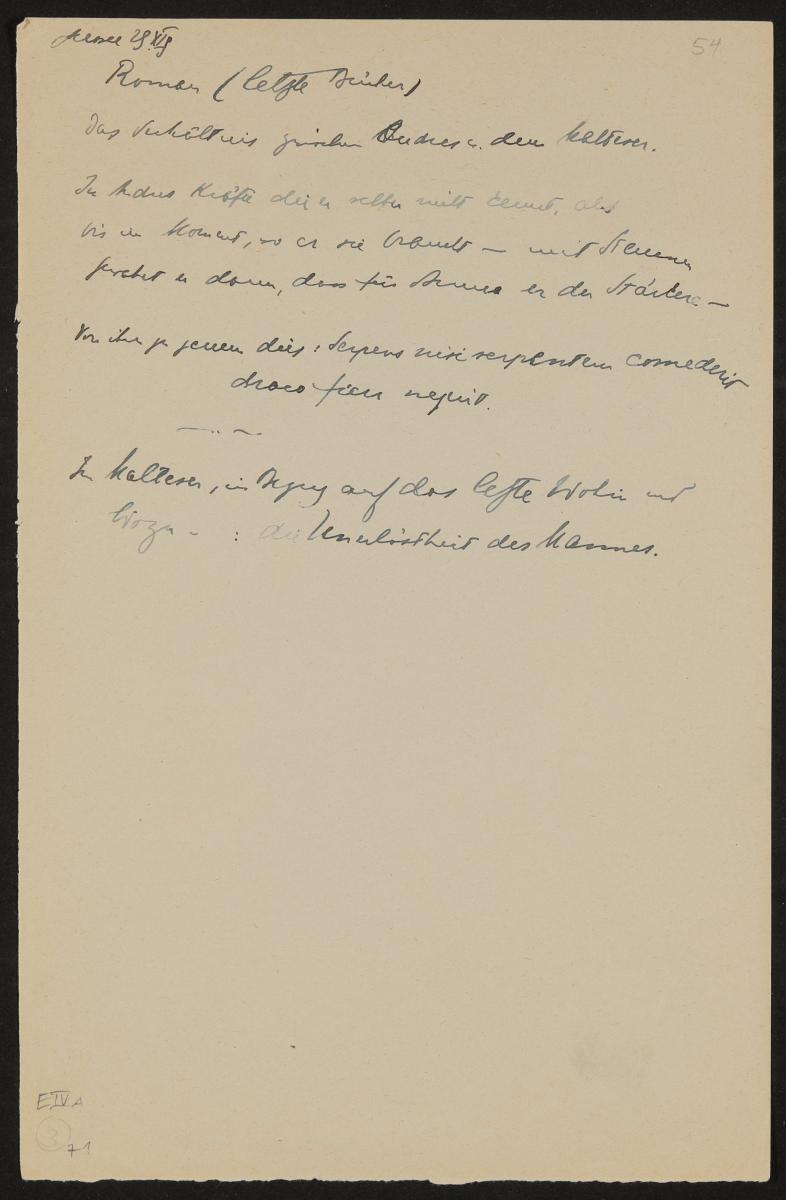 Aussee 29 XI 19
54
Roman (letzte Bücher)
Das Verhältnis zwischen Andres u. dem Malteser.
In Andres Kräfte die er selber nicht kennt, als
bis im Moment, wo er sie braucht — mit Staunen
gewahrt er dann, dass für er der Stärkere —
Von ihm zu jenem dies: Serpens nisi serpentem comederit
draco fieri nequit.
Im Malteser, in Bezug auf das letzte Wohin und
Wozu – : die Unerlöstheit des Mannes.
E IV A
3
71